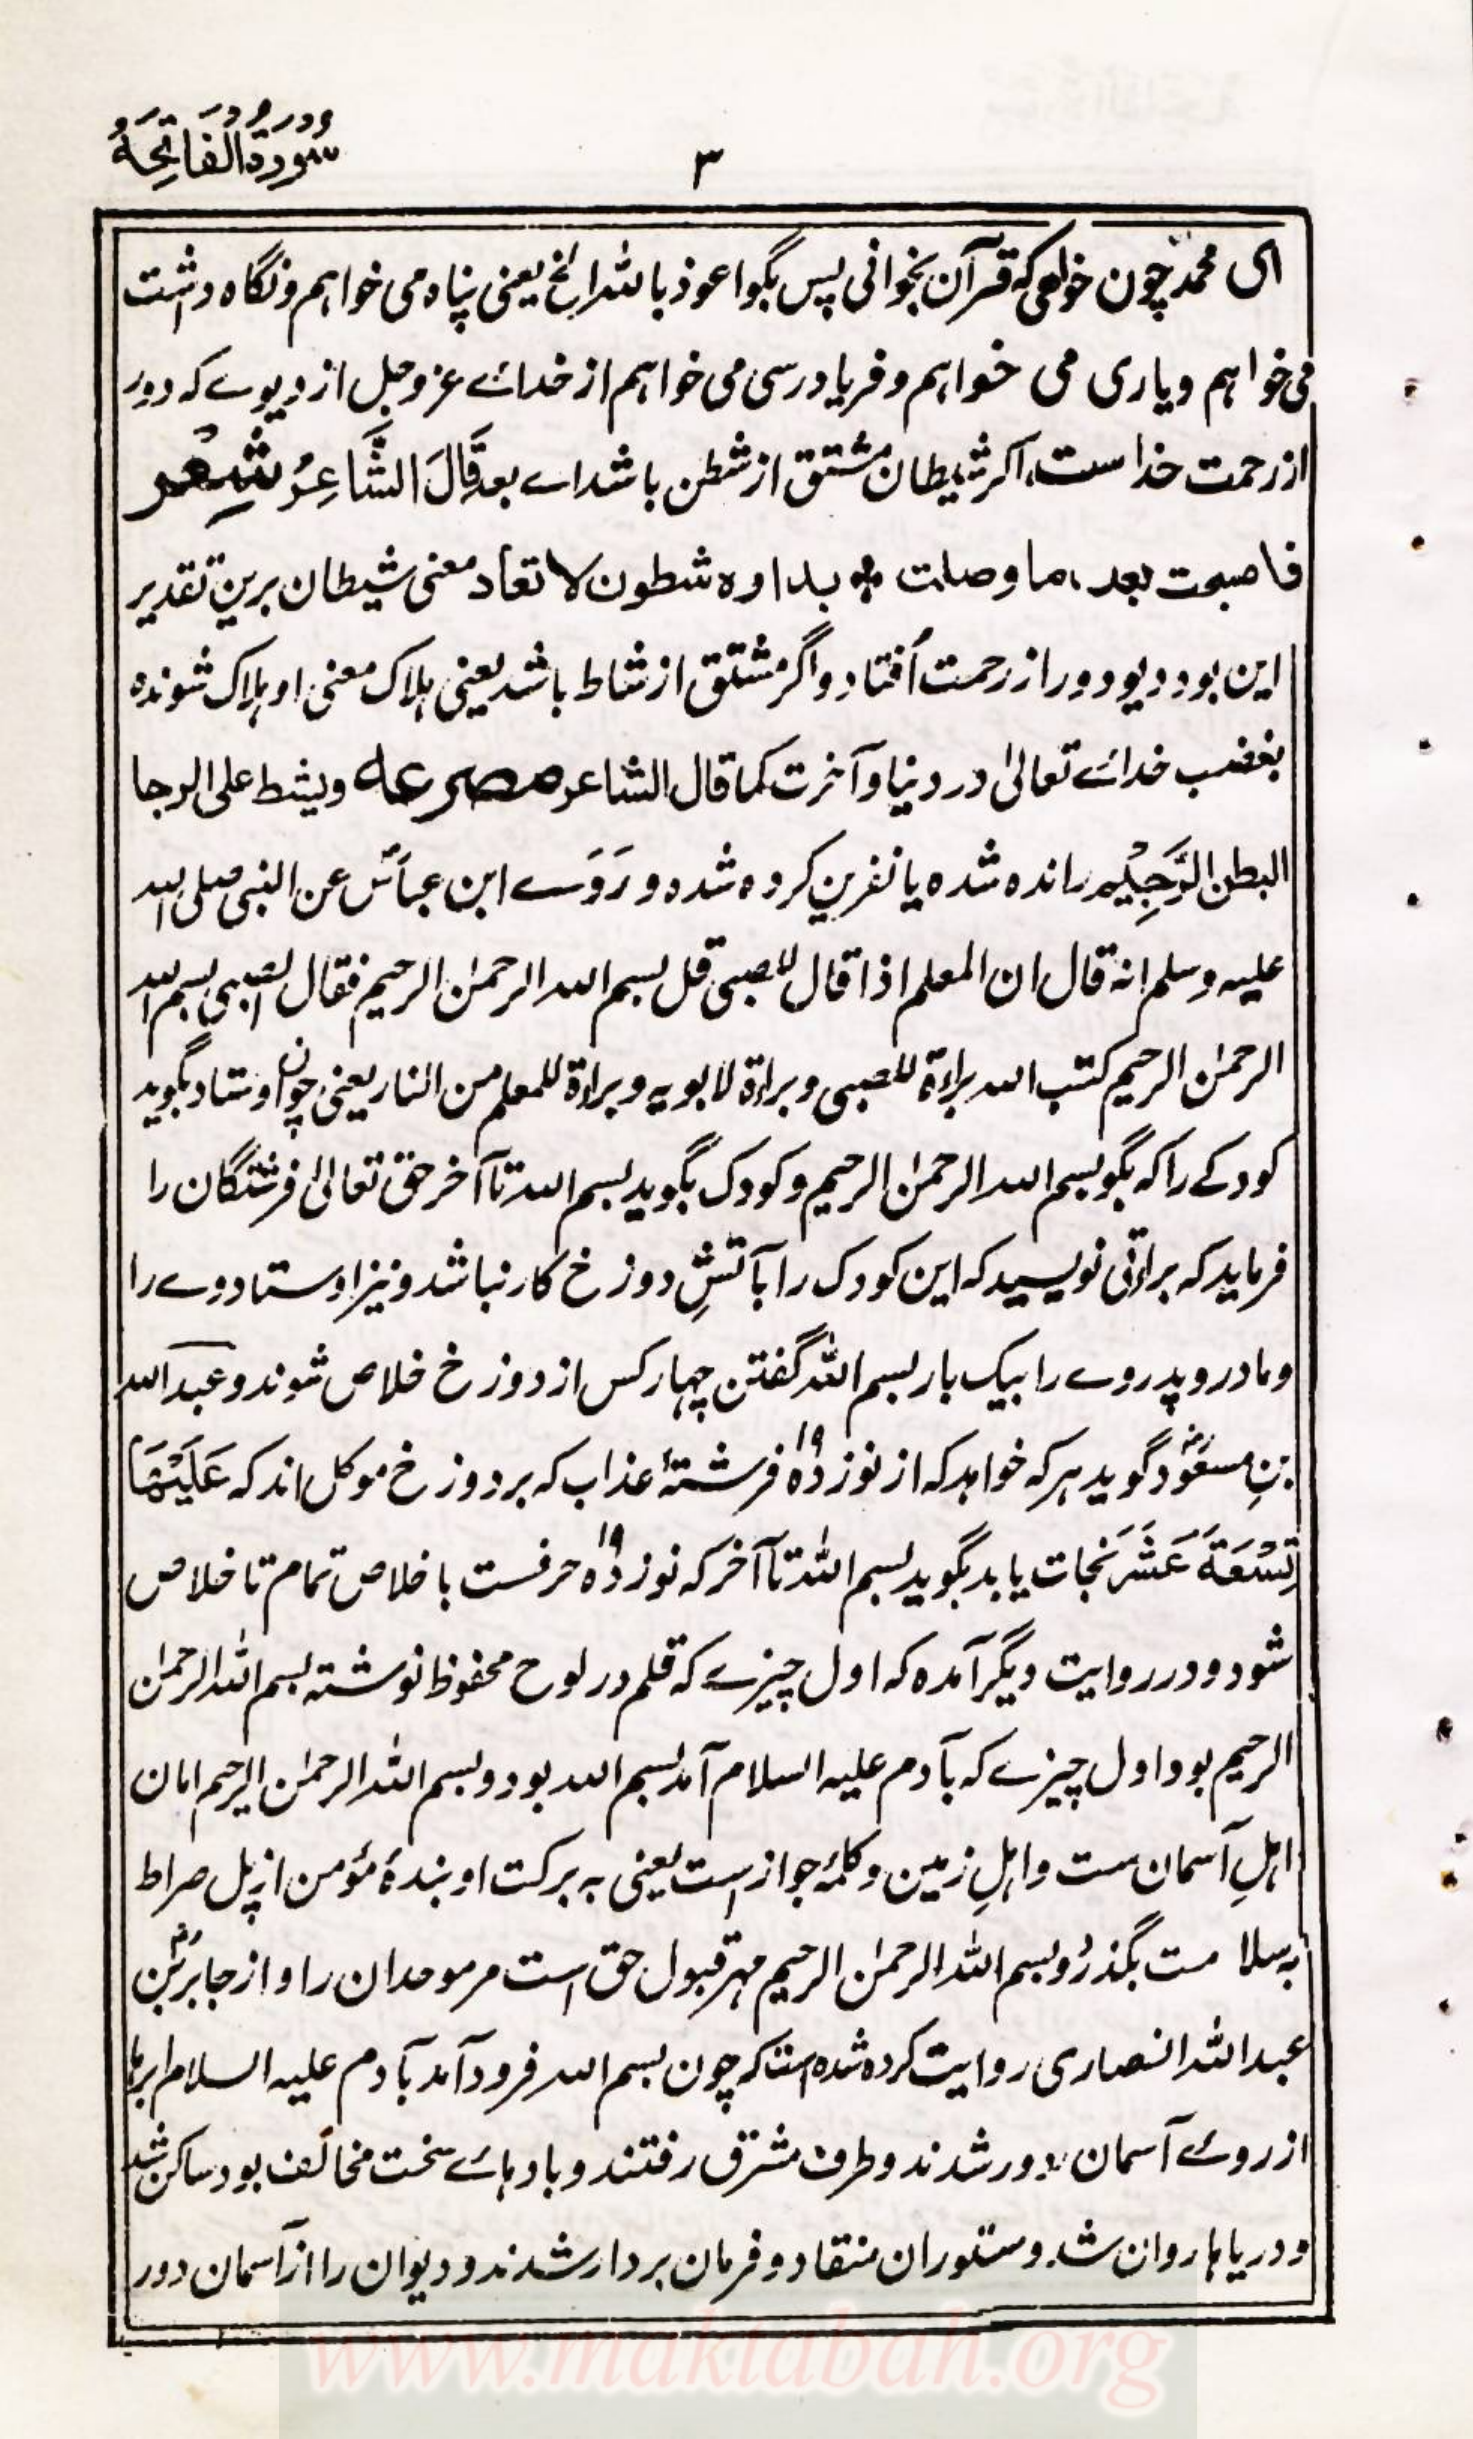 سُورَةُ الْفَاتِحَةُ
۳
ای محمد چون خواهی که قرآن بخوانی پس بگو اعوذ بالله الخ یعنی پناه می خواهم و نگاه داشت
می خواهم و یاری می خواهم و فریاد رسی می خواهم از خدائے عزوجل از دیوے که دور
از رحمت خداست، اگر شیطان مشتق از شطن باشد اے بعد قَالَ الشَّاعِرُ شِعْر
فاصبحت بعد ما وصلت ❖ بداوه شطون لا تعاد معنی شیطان برین تقدیر
این بود دیو دور از رحمت اُفتاد و اگر مشتق از شاط باشد یعنی هلاک معنی او هلاک شونده
بغضب خدائے تعالیٰ در دنیا و آخرت کما قال الشاعر مصرعه ویشط علی الرجا
البطن الرَّجِیْم رانده شده یا نفرین کرده شده و رَوَے ابن عباسؓ عن النبی صلی الله
علیه وسلم انه قال ان المعلم اذا قال للصبی قل بسم الله الرحمٰن الرحیم فقال الصبی بسم الله
الرحمٰن الرحیم کتب الله براءة للصبی و براءة لابویه و براءة للمعلم من النار یعنی چون اوستاد بگوید
کودکے را که بگو بسم الله الرحمٰن الرحیم و کودک بگوید بسم الله تا آخر حق تعالیٰ فرشتگان را
فرماید که براتی نویسید که این کودک را بآتشِ دوزخ کار نباشد و نیز اوستاد وے را
و مادر و پدر وے را بیک بار بسم الله گفتن چهار کس از دوزخ خلاص شوند و عبدالله
بنِ مسعودؓ گوید هر که خواهد که از نوزده ۱۹ فرشتهٔ عذاب که بر دوزخ موکل اند که عَلَیْهَا
تِسْعَةَ عَشَرَ نجات یابد بگوید بسم الله تا آخر که نوزده ۱۹ حرفست باخلاص تمام تا خلاص
شود و در روایت دیگر آمده که اول چیزے که قلم در لوح محفوظ نوشته بسم الله الرحمٰن
الرحیم بود اول چیزے که بآدم علیه السلام آمد بسم الله بود و بسم الله الرحمٰن الرحیم امان
اهلِ آسمان ست و اهلِ زمین و کلمهٔ جواز است یعنی به برکت او بندهٔ مؤمن از پل صراط
به سلامت بگذرد و بسم الله الرحمٰن الرحیم مهر قبول حق است مر موحدان را و از جابرؓ بن
عبدالله انصاری روایت کرده شده است که چون بسم الله فرود آمد بآدم علیه السلام ابرها
از روئے آسمان دور شدند و طرف مشرق رفتند و بادهائے سخت مخالف بود ساکن شد
و دریاها روان شد و ستوران منقاد و فرمان بردار شدند و دیوان را از آسمان دور
www.maktabah.org